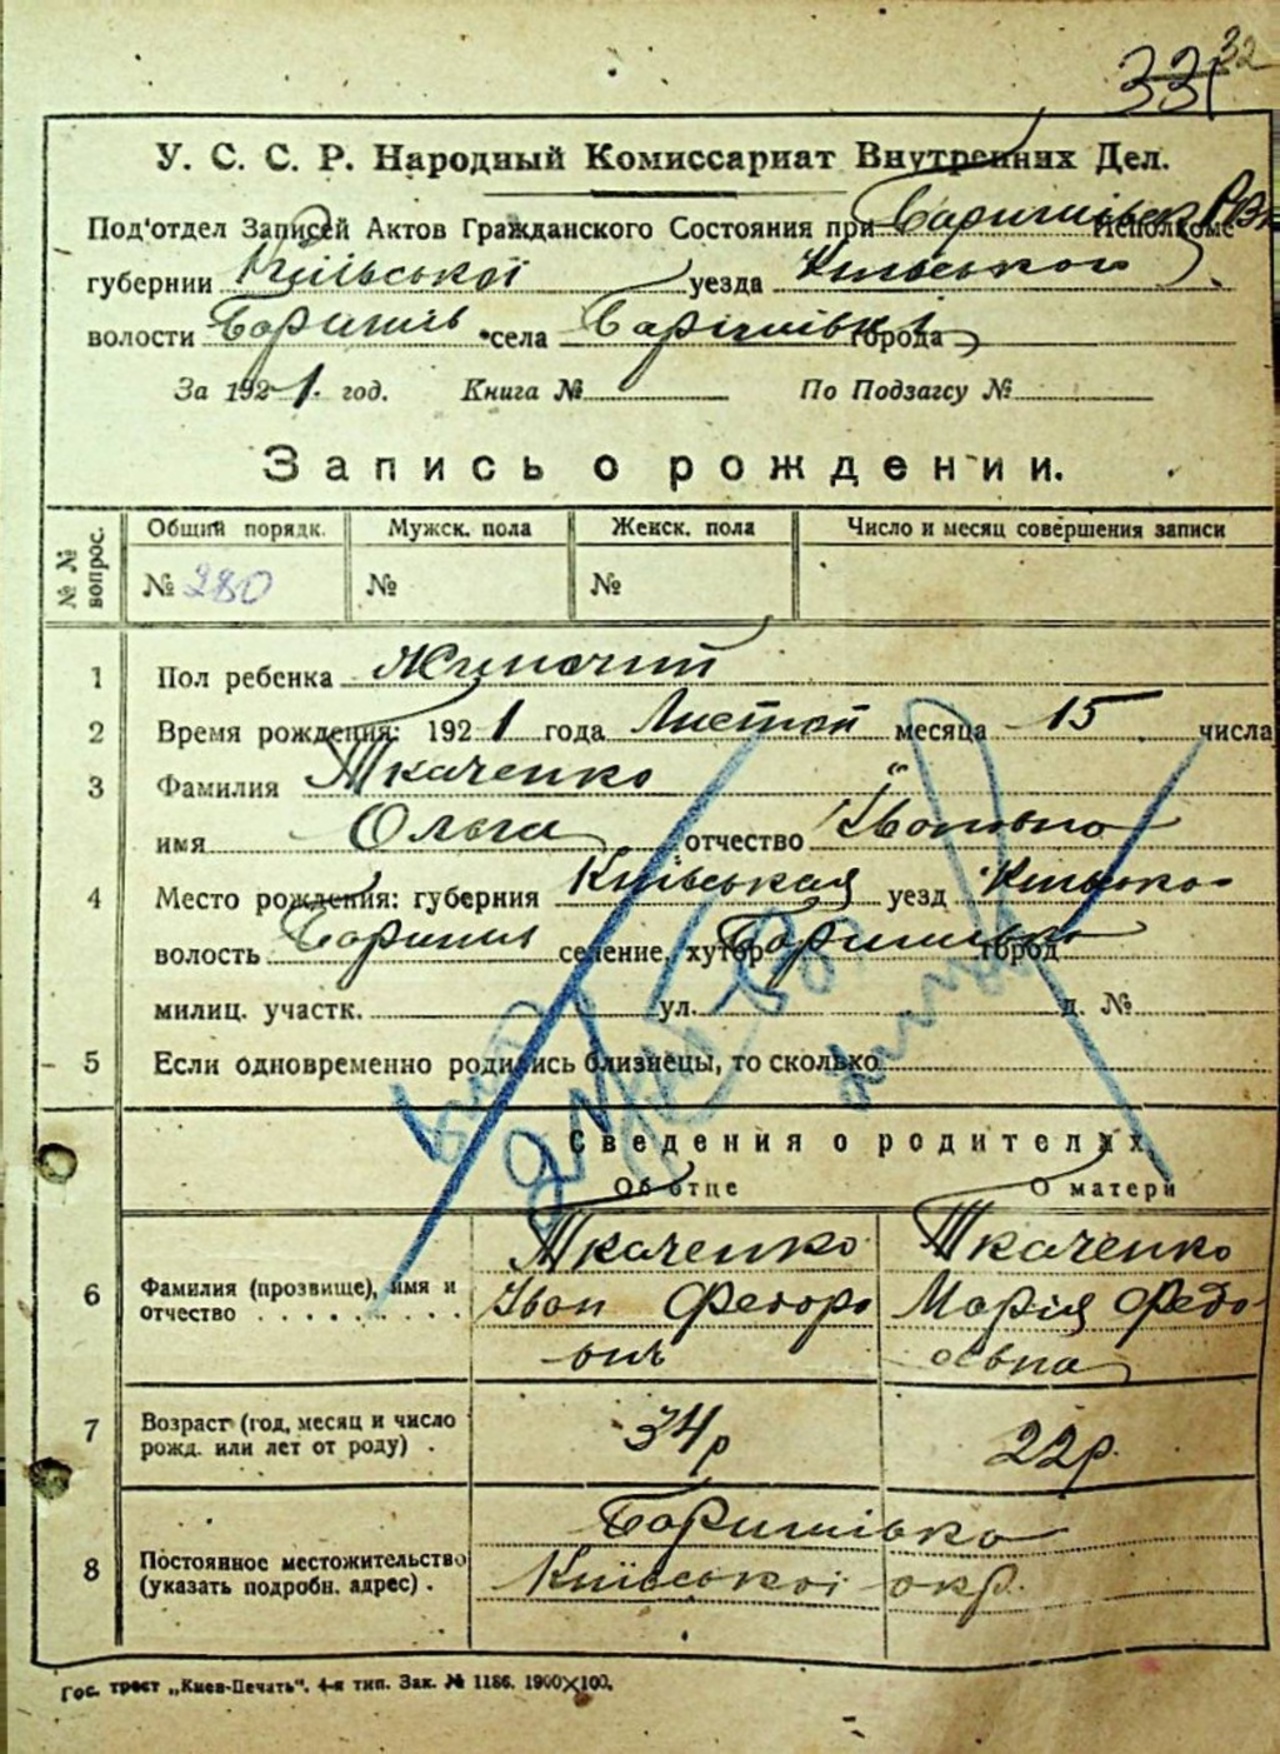 331 32
У. С. С. Р. Народный Комиссариат Внутренних Дел.
Под'отдел Записей Актов Гражданского Состояния при Баришівськ РВК Исполкоме
губернии Київської уезда Київського
волости Баришів села Баришівка города
За 1921. год. Книга № По Подзагсу №
Запись о рождении.
№№ вопрос. Общий порядк. Мужск. пола Женск. пола Число и месяц совершения записи
№ 280 № №
1 Пол ребенка Жиночий
2 Время рождения: 1921 года Листоп месяца 15 числа
3 Фамилия Ткаченко
имя Ольга отчество Івановна
4 Место рождения: губерния Київськая уезд Київсько-
волость Баришів селение, хутор Баришівка город
милиц. участк. ул. д. №
5 Если одновременно родились близнецы, то сколько
Сведения о родителях
Об отце О матери
Ткаченко Ткаченко
6 Фамилия (прозвище), имя и отчество Іван Федоро Марія Федо-
вич осьвна
7 Возраст (год, месяц и число рожд. или лет от роду) 34р 22р.
Баришівка
8 Постоянное местожительство (указать подробн. адрес) Київської окр.
Гос. трест „Киев-Печать“. 4-я тип. Зак. № 1186. 1900×100.